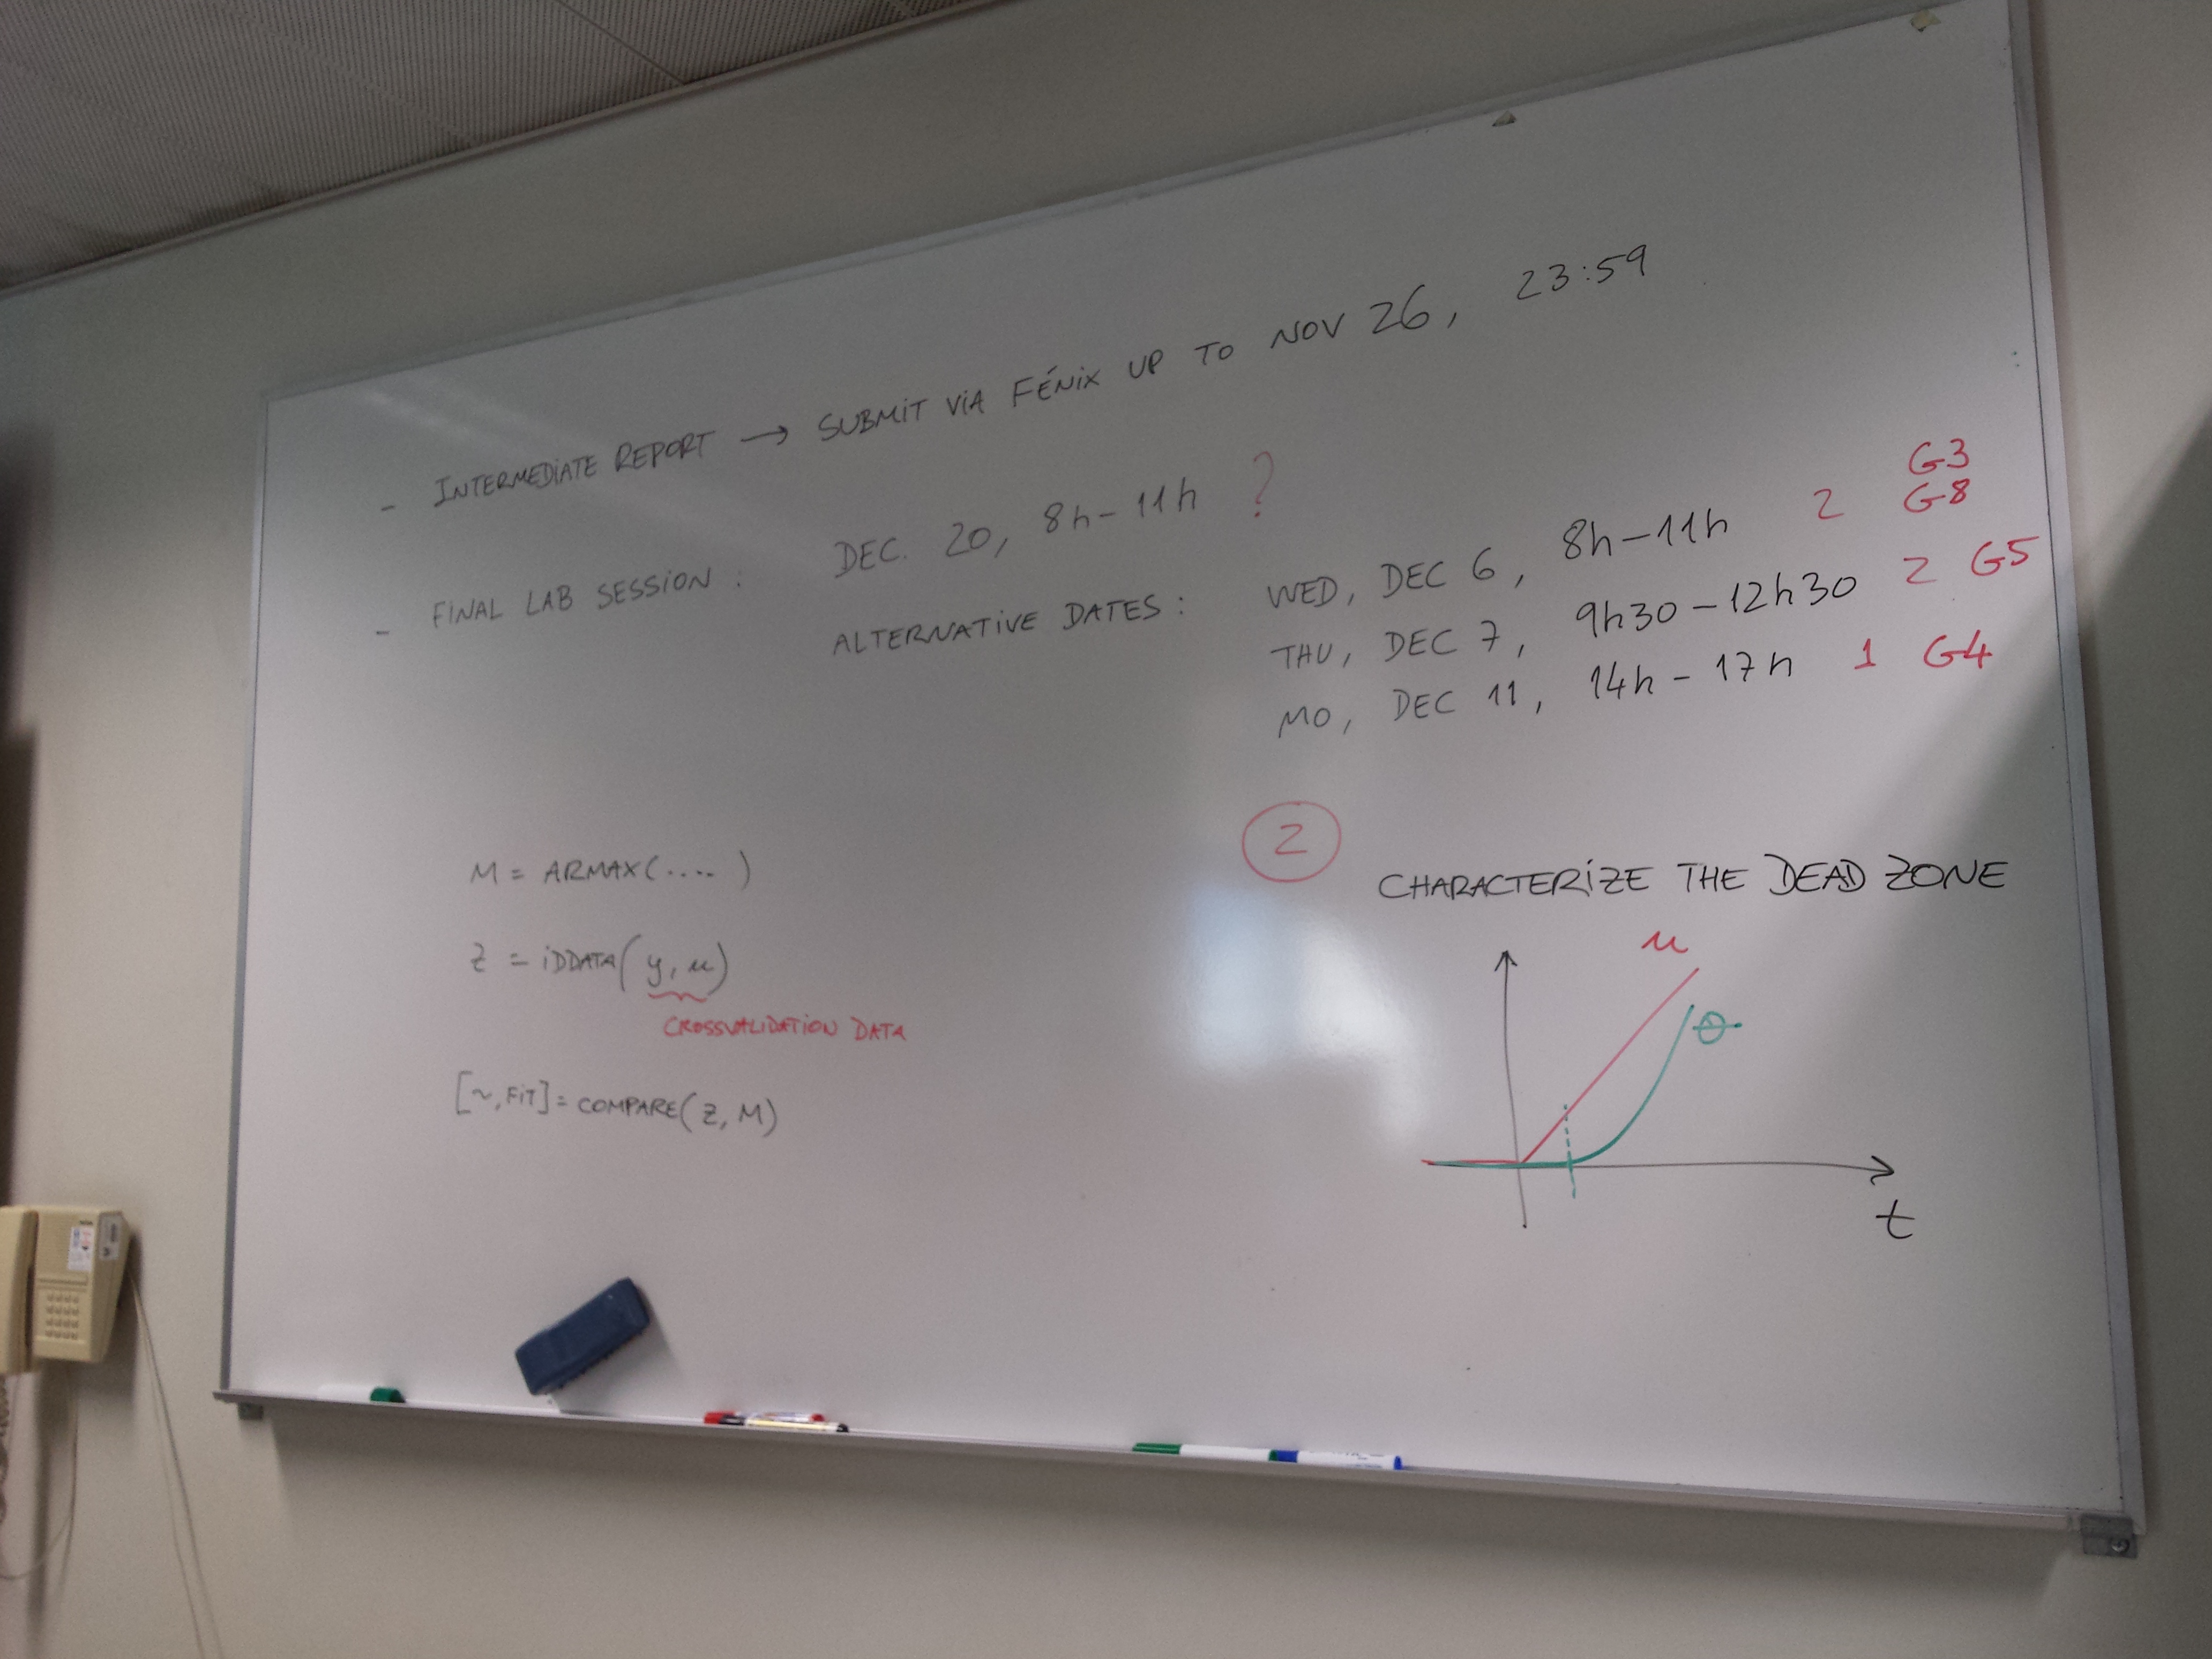 - INTERMEDIATE REPORT → SUBMIT VIA FÉNIX UP TO NOV 26, 23:59
- FINAL LAB SESSION : DEC. 20, 8h-11h ?
ALTERNATIVE DATES : WED, DEC 6, 8h-11h 2 G3 G8
THU, DEC 7, 9h30-12h30 2 G5
MO, DEC 11, 14h-17h 1 G4
M = ARMAX(....)
Z = iDDATA(y, u)
CROSSVALIDATION DATA
[~, FIT] = COMPARE(Z, M)
2
CHARACTERIZE THE DEAD ZONE
u
θ
t